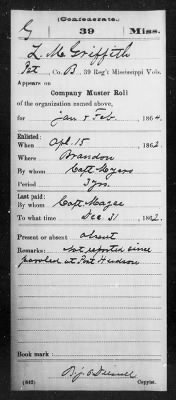 (Confederate.)
G 39 Miss.
L. M. Griffith
Pvt, Co. B, 39 Reg't Mississippi Vols.
Appears on
Company Muster Roll
of the organization named above,
for Jan & Feb, 1864.
Enlisted:
When Apl. 15, 1862.
Where Brandon
By whom Capt Myers
Period 3 yrs.
Last paid:
By whom Capt Magee
To what time Dec 31, 1862.
Present or absent absent
Remarks: Not reported since
paroled at Port Hudson
Book mark:
(642) Copyist.